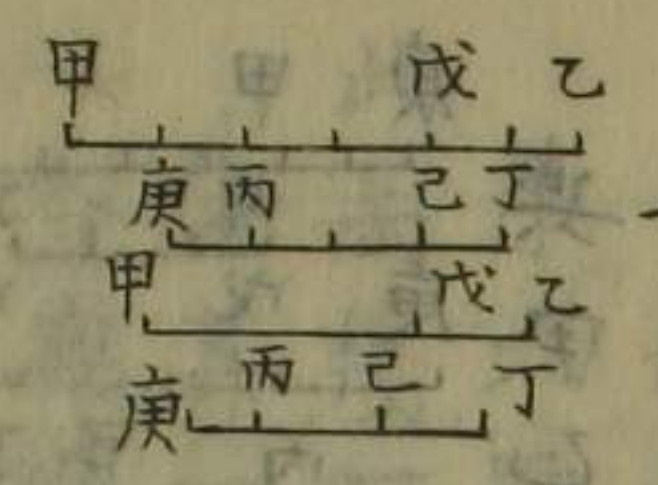 甲 戊 乙
庚 丙 己 丁
甲 戊 乙
庚 丙 己 丁